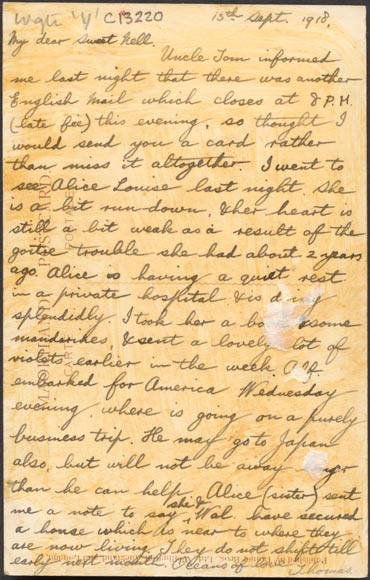 wgti 'Y' C13220
13th Sept. 1918.
My dear Sweet Nell.
Uncle Tom informed
me last night that there was another
English Mail which closes at 8 P.M.
(late fee) this evening, so thought I
would send you a card rather
than miss it altogether. I went to
see Alice Louise last night. She
is a bit run-down, & her heart is
still a bit weak as a result of the
goitre trouble she had about 2 years
ago. Alice is having a quiet rest
in a private hospital & is d ng
splendidly. I took her a bo some
mandarines, & sent a lovely lot of
violets earlier in the week. Alf.
embarked for America Wednesday
evening, where is going on a purely
business trip. He may go to Japan
also, but will not be away nger
than he can help. Alice (sister) sent
me a note to say she & Wal have secured
a house which is near to where they
are now living. They do not shift till
early next month. Oceans of
Thomas.